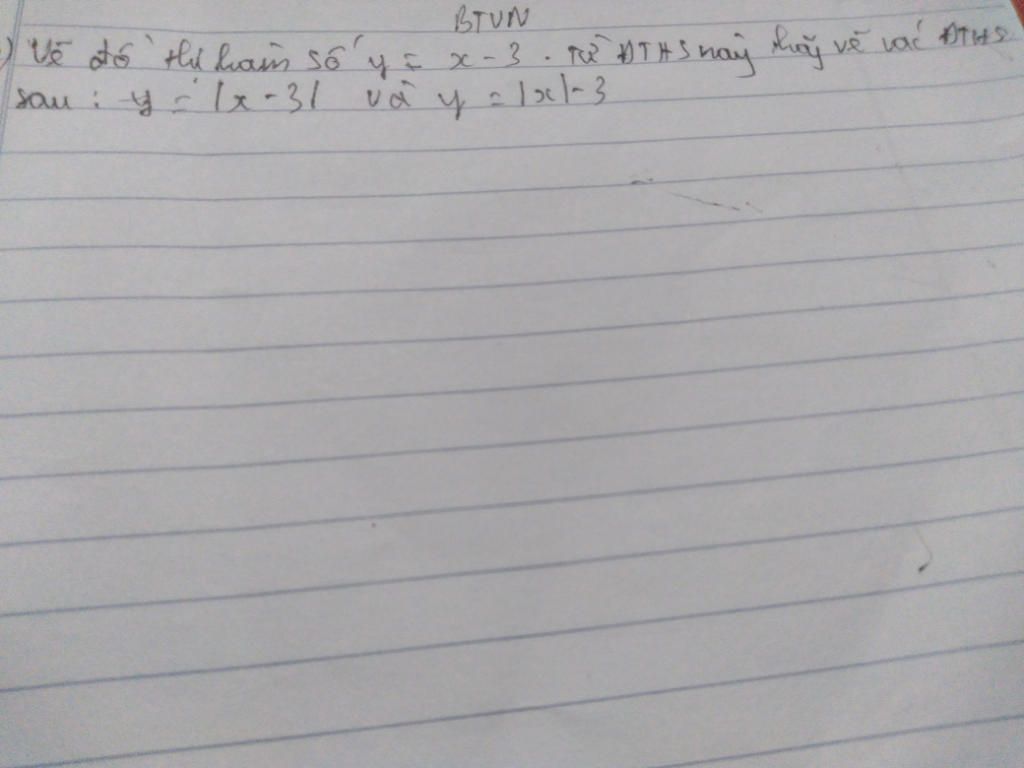 BTVN
) Vẽ đồ thị hàm số y = x - 3. Từ ĐTHS này hãy vẽ các ĐTHS
sau: y = |x - 3| và y = |x| - 3